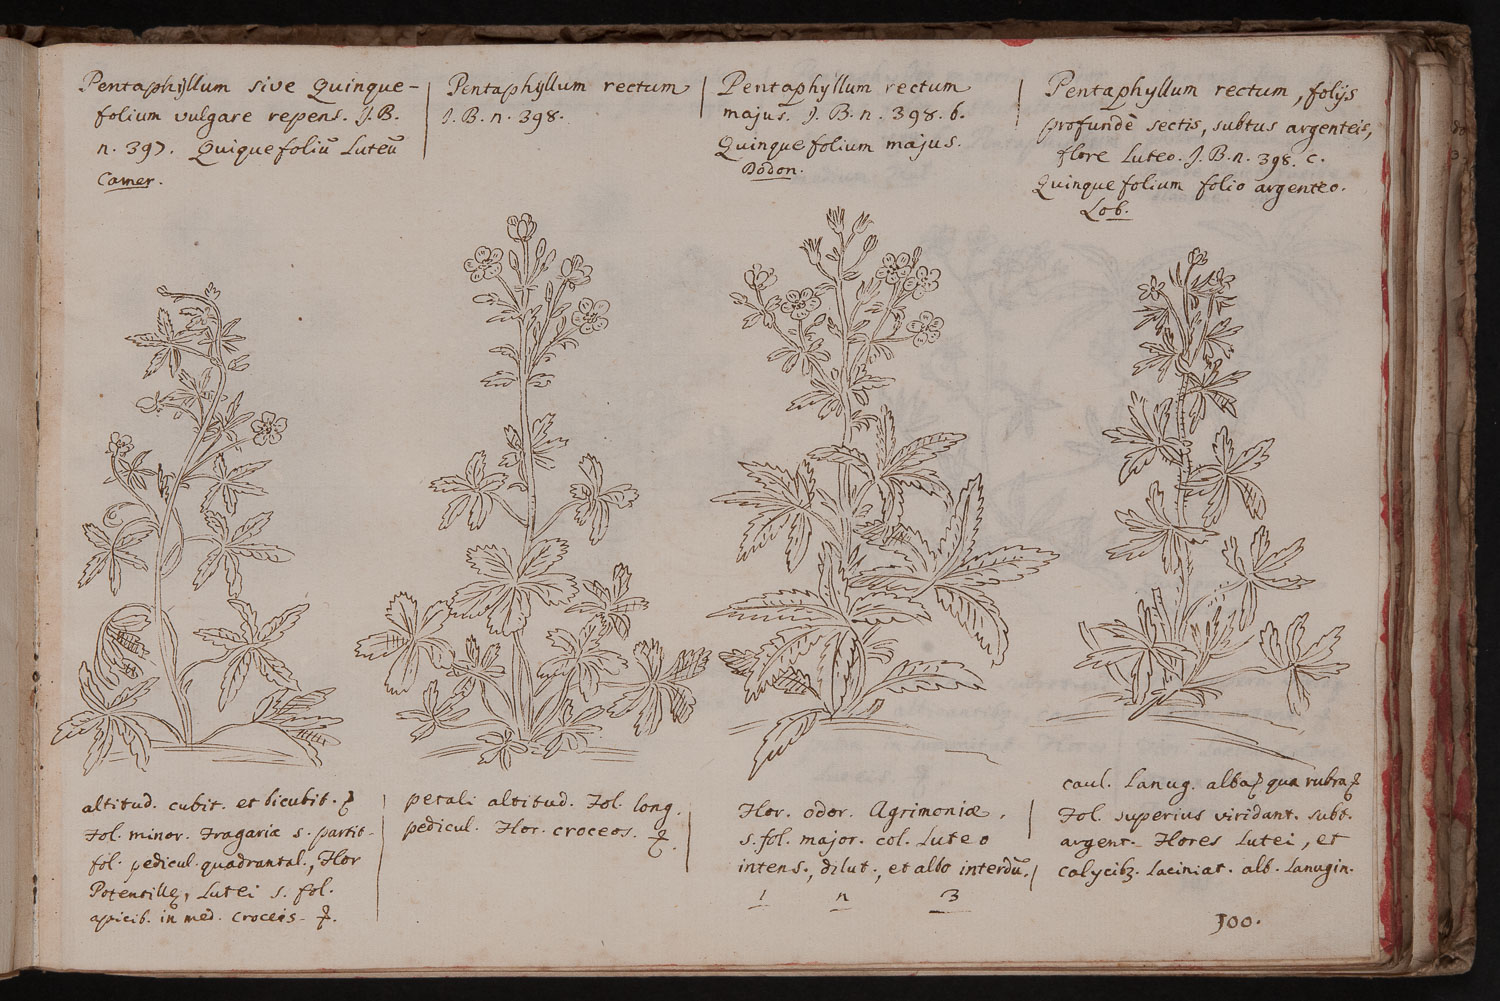 Pentaphyllum sive Quinque-
folium vulgare repens. J.B.
n. 397. Quiquefoliū Luteū
Camer.
Pentaphyllum rectum
J.B.n. 398.
Pentaphyllum rectum
majus. J.B.n. 398. b.
Quinquefolium majus.
Dodon.
Pentaphyllum rectum, folijs
profundè sectis, subtus argenteis,
flore Luteo. J.B.n. 398. c.
Quinquefolium folio argenteo.
Lob.
altitud. cubit. et bicubit.
Fol. minor. Fragariæ s. partit-
fol. pedicul. quadrantal., Flor
Potentillę, Lutei s. fol.
apicib. in med. croceis-
petali altitud. Fol. long.
pedicul. Flor. croceos.
Flor. odor. Agrimoniæ.
s. fol. major. col. Luteo
intens., dilut., et albo interdū.
1 n 3
caul. Lanug. alba qua rubra
Fol. superius viridant. subt.
argent- Flores Lutei, et
calycibꝫ. Laciniat. alb. Lanugin.
100.